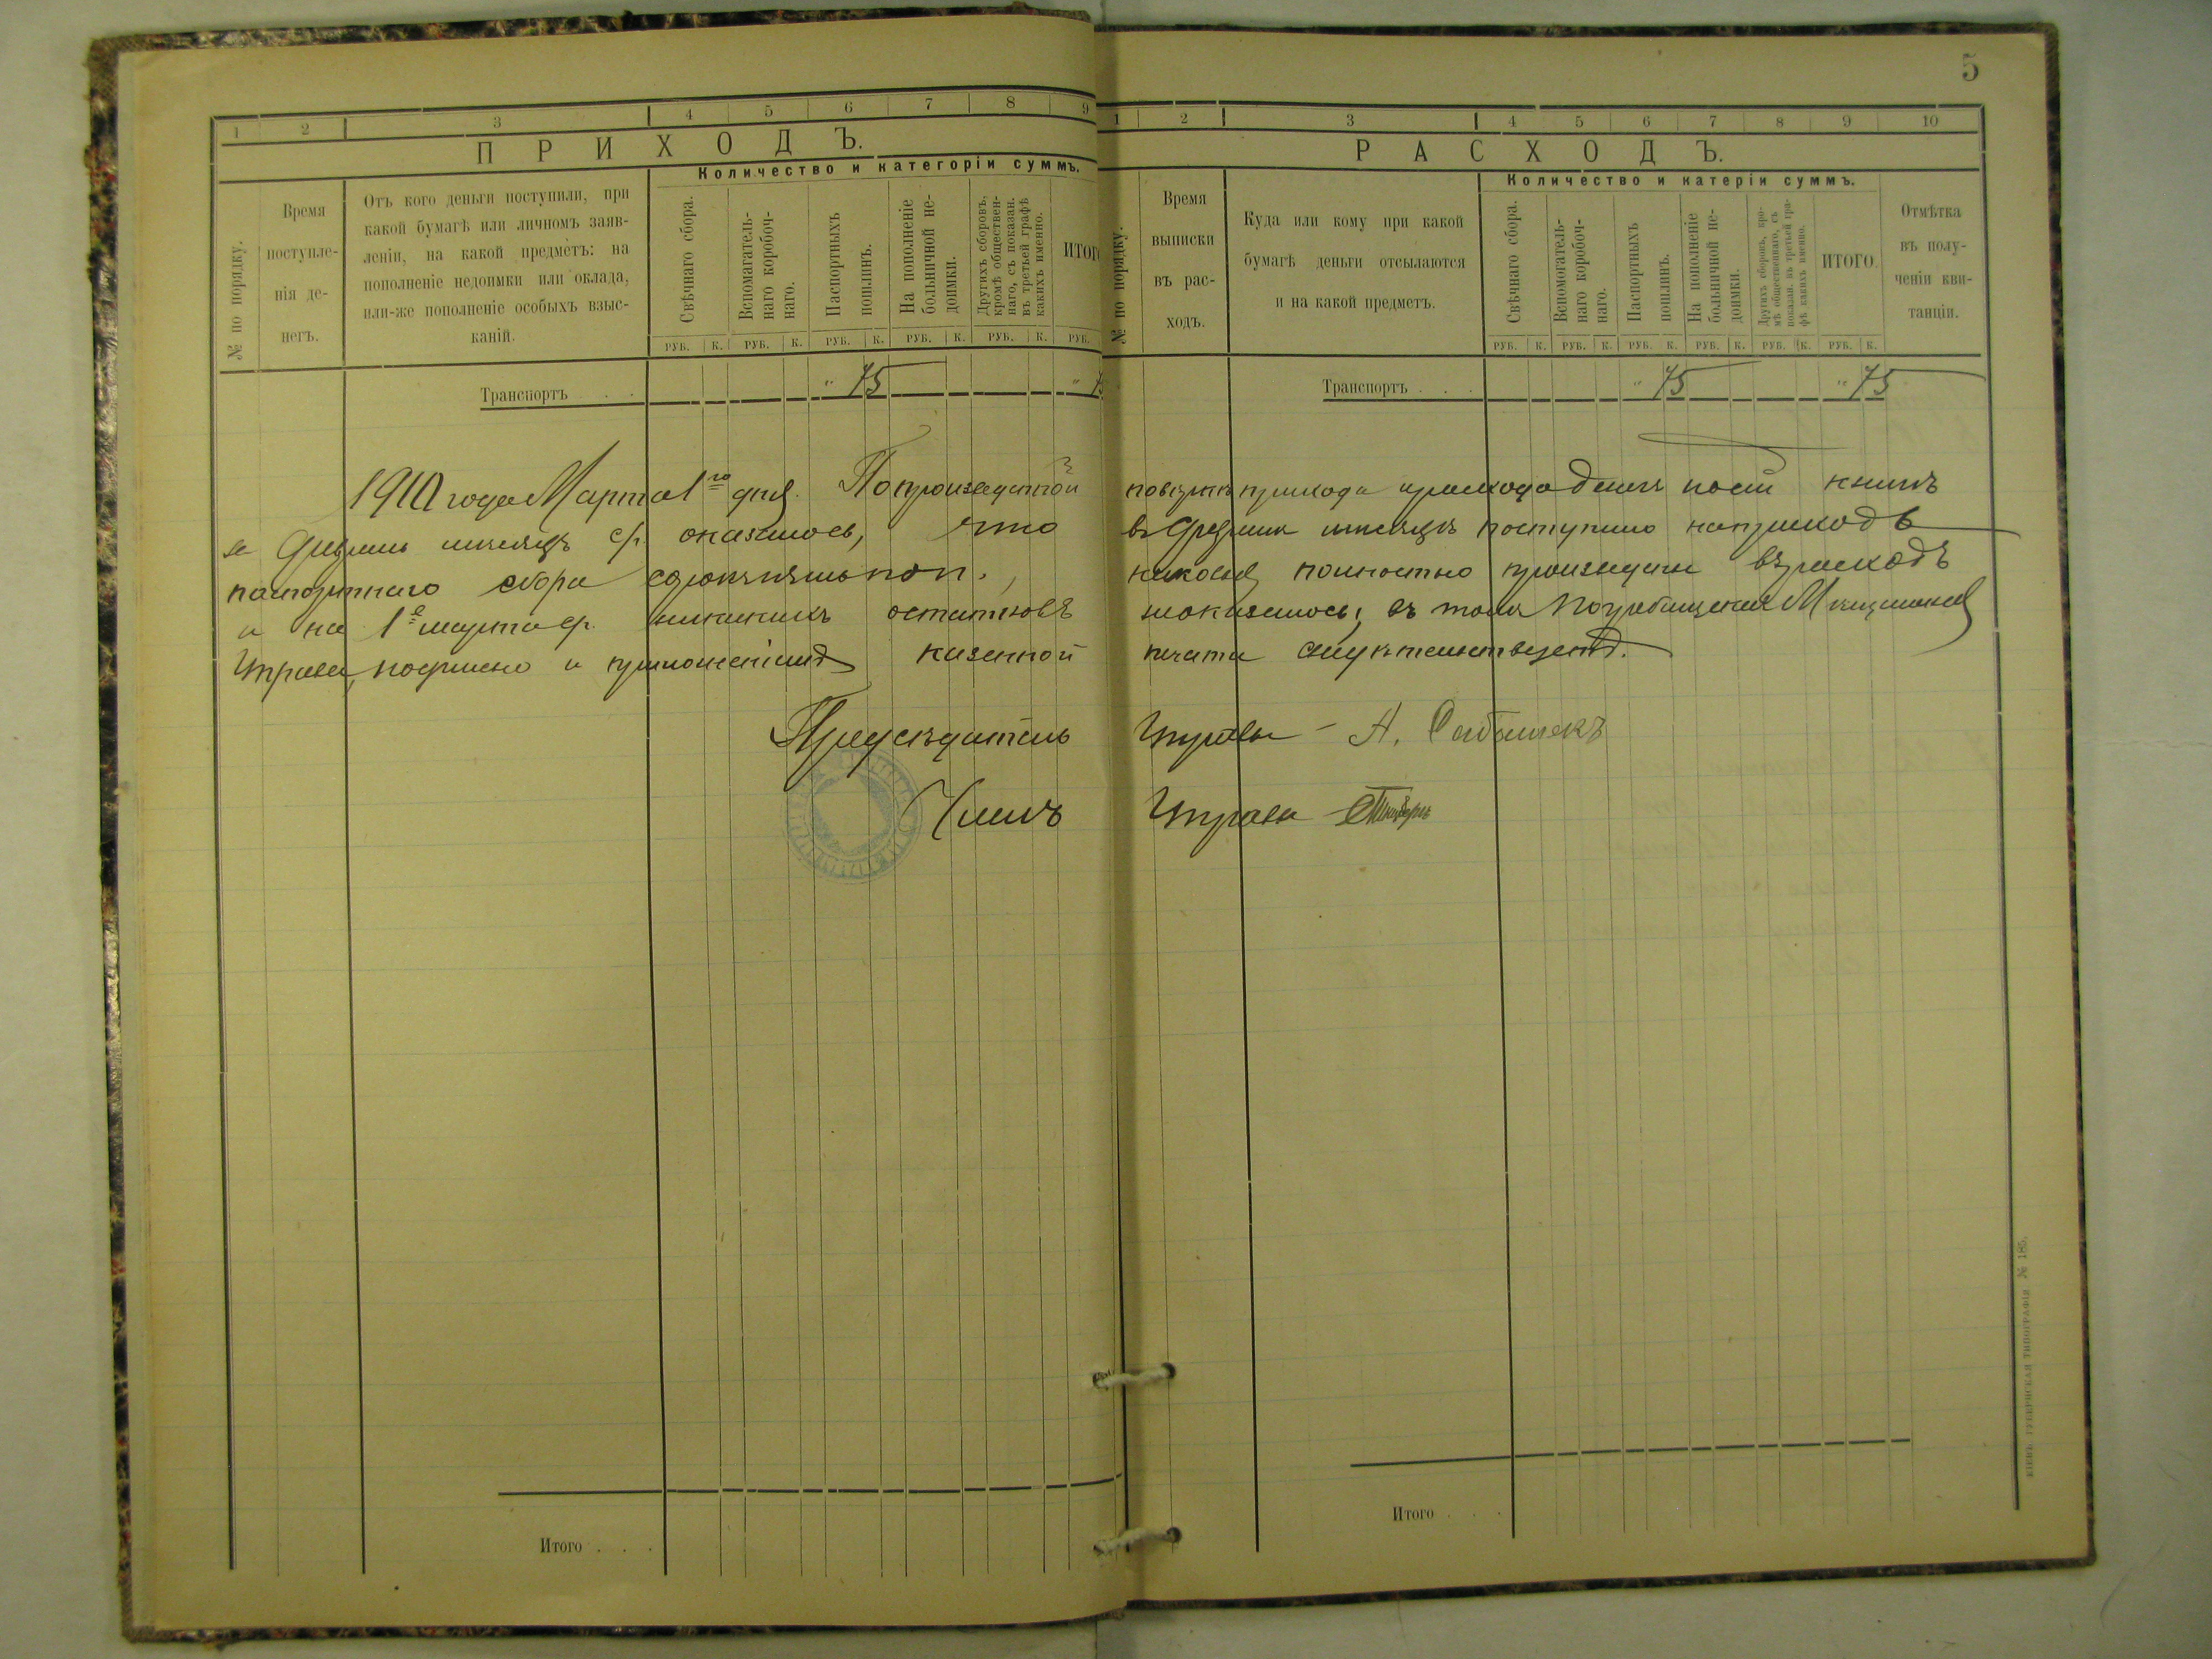 5
1 2 3 4 5 6 7 8 9
ПРИХОДЪ.
Количество и категоріи суммъ.
№ по порядку.
Время
поступле-
нія де-
негъ.
Отъ кого деньги поступили, при
какой бумагѣ или личномъ заяв-
леніи, на какой предметъ: на
пополненіе недоимки или оклада,
или-же пополненіе особыхъ взыс-
каній.
Свѣчнаго сбора.
Вспомагатель-
наго коробоч-
наго.
Паспортныхъ
пошлинъ.
На пополненіе
больничной не-
доимки.
Другихъ сборовъ,
кромѣ обществен-
наго, съ показан.
въ третьей графѣ
какихъ именно.
ИТОГО
РУБ. К. РУБ. К. РУБ. К. РУБ. К. РУБ. К. РУБ.
Транспортъ . . . " 75 "
1 2 3 4 5 6 7 8 9 10
РАСХОДЪ.
Количество и катеріи суммъ.
№ по порядку.
Время
выписки
въ рас-
ходъ.
Куда или кому при какой
бумагѣ деньги отсылаются
и на какой предметъ.
Свѣчнаго сбора.
Вспомогатель-
наго коробоч-
наго.
Паспортныхъ
пошлинъ.
На пополненіе
больничной не-
доимки.
Другихъ сборовъ, кро-
мѣ общественнаго, съ
показан. въ третьей гра-
фѣ какихъ именно.
ИТОГО.
Отмѣтка
въ полу-
ченіи кви-
танціи.
РУБ. К. РУБ. К. РУБ. К. РУБ. К. РУБ. К. РУБ. К.
Транспортъ . . . " 75 " 75
1910 года Марта 1го дня. По произведенной повѣркѣ прихода и расхода денегъ по сей книгѣ
за Февраль мѣсяцъ с/г. оказалось, что въ Февралѣ мѣсяцѣ поступило на приходъ
паспортнаго сбора семьдесять пять коп., каковыя полностью произведены въ расходъ
и на 1е марта с/г. никакихъ остатковъ не оказалось, въ томъ Погребищенская Мѣщанская
Управа, подписью и приложеніемъ казенной печати свидѣтельствуетъ.
Предсѣдатель Управы - А.
Членъ Управы
Итого . . .
Итого . . .
КІЕВЪ. ГУБЕРНСКАЯ ТИПОГРАФІЯ № 185.